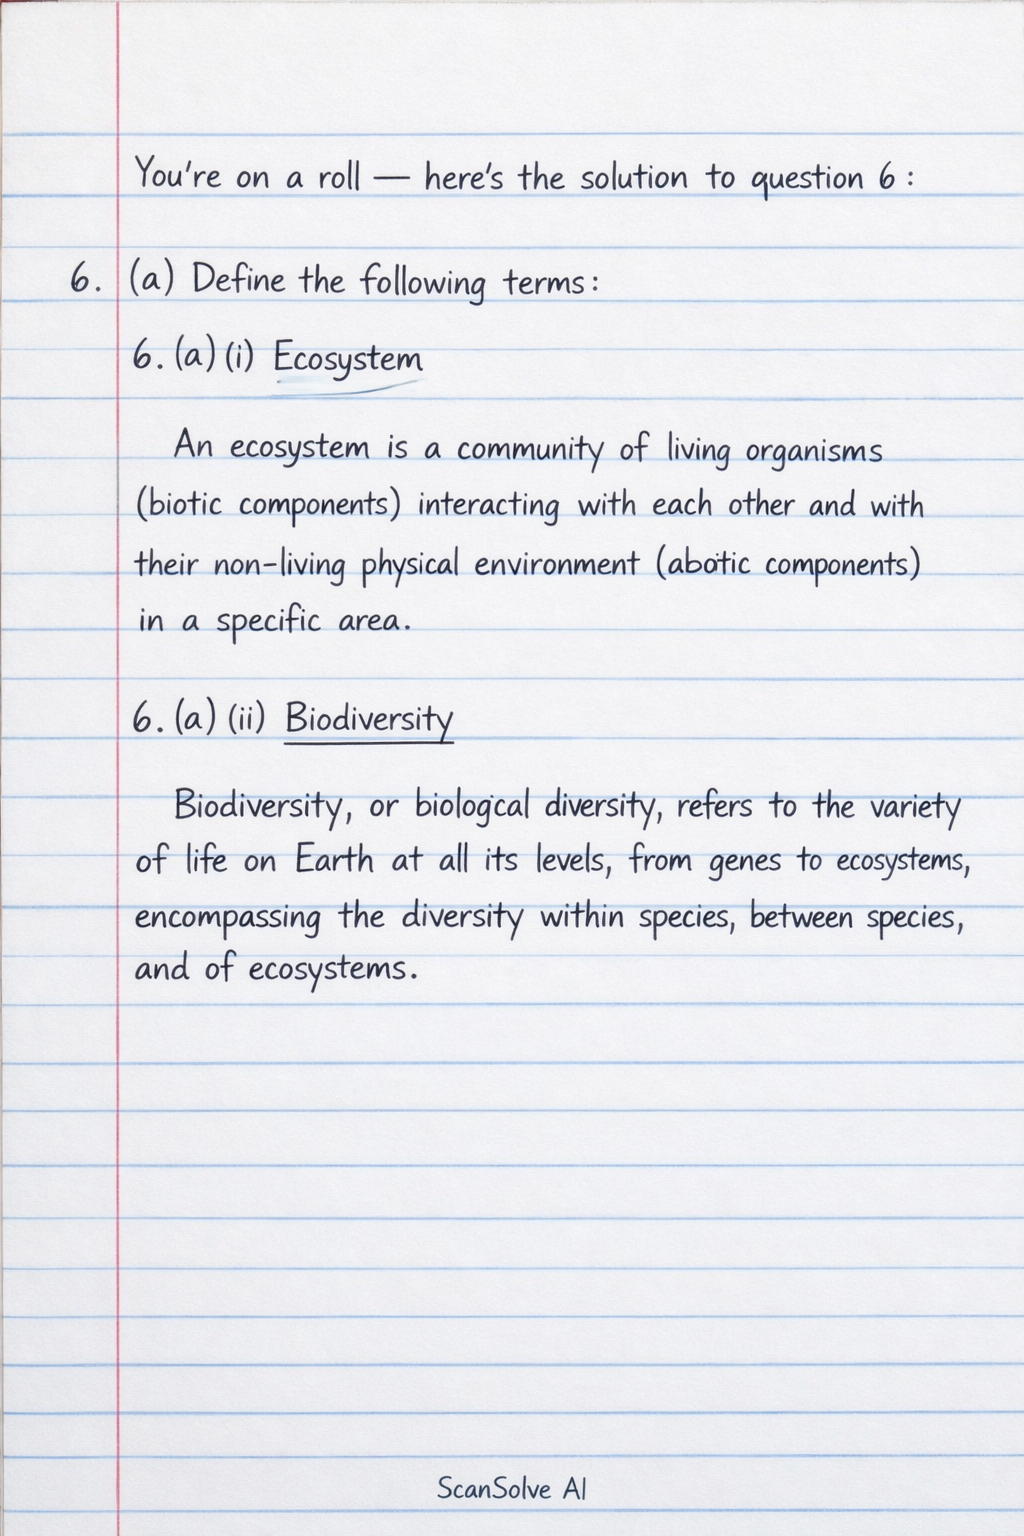 You're on a roll — here's the solution to question 6:
6. (a) Define the following terms:
6. (a) (i) Ecosystem
An ecosystem is a community of living organisms
(biotic components) interacting with each other and with
their non-living physical environment (abotic components)
in a specific area.
6. (a) (ii) Biodiversity
Biodiversity, or biologcal diversity, refers to the variety
of life on Earth at all its levels, from genes to ecosystems,
encompassing the diversity within species, between species,
and of ecosystems.
ScanSolve AI